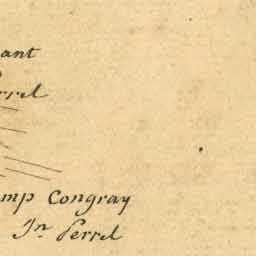 ant
rrel
mp Congray
Jn Perrel